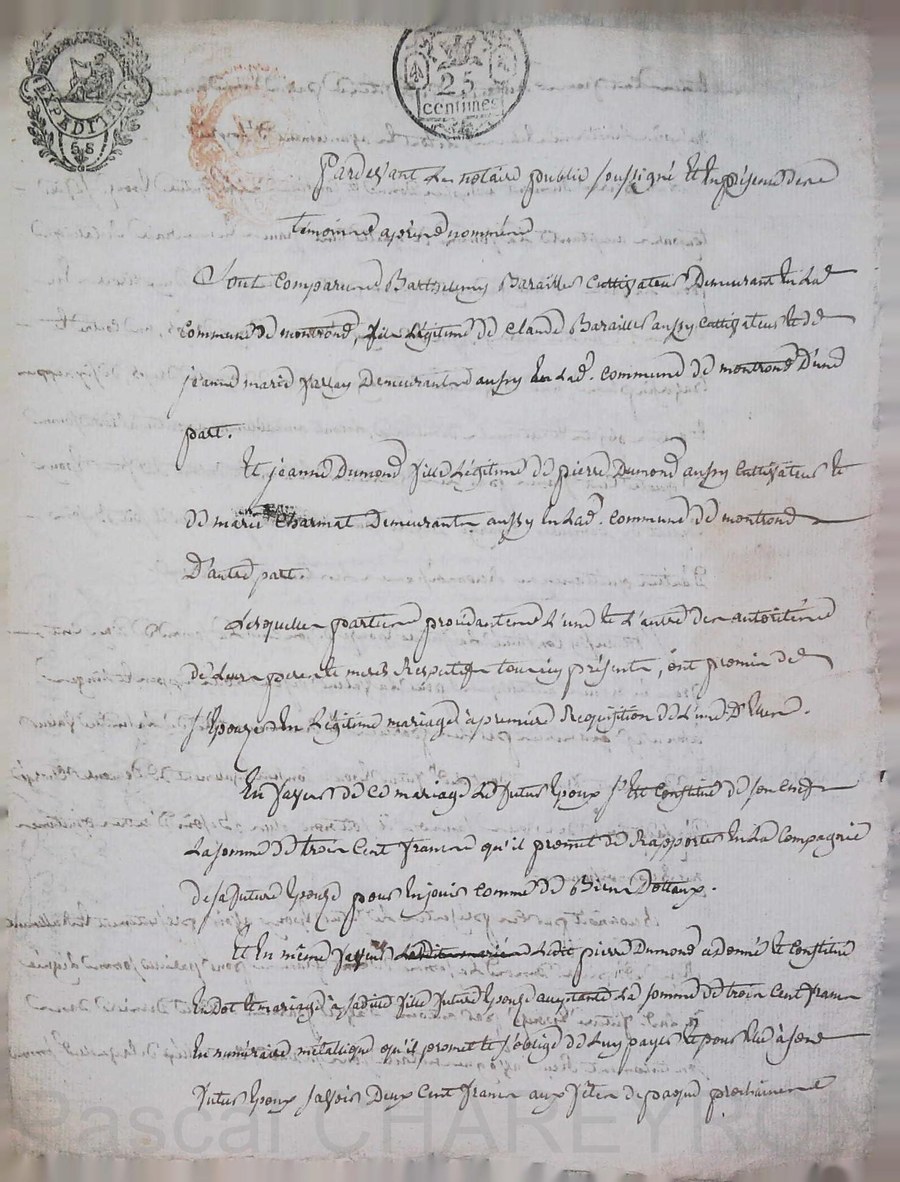 EXPEDITION
25
centimes
Pardevant Le notaire public soussigné Et En présence des
témoins après nommés
Sont Comparus Barthelemy Barailler Cultivateur Demeurant En La
Commune De montrond, fils Légitime De Claude Barailler aussy Cultivateur Et de
jeanne marie Demeurants aussy En Lad. commune De montrond D'une
part.
Et jeanne Dumond fille Légitime De pierre Dumond aussy Cultivateur Et
De marie Charmat Demeurants aussy En Lad. Commune De montrond
D'autre part.
Lesquelles parties procédantes L'une Et L'autre Des autorités
De Leurs pere Et mere Respectifs tous icy présents, ont promis de
s'Epouzer En Légitime mariage à premiere Requisition De L'une D'Elles.
En faveur De Ce mariage Le futur Epoux s'Est Constitué De son Chef
La somme De trois Cent francs qu'il promet De Rapporter En La Compagnie
De sa future Epouze pour En jouir Comme De Biens Dottaux.
Et En même faveur Ledit pierre Dumond a Donné Et Constitué
En Dot Et mariage à sadite fille future Epouze acceptante La somme De trois Cent francs
En numéraire métallique qu'il promet Et s'oblige De Luy payer Et pour Elle à son
futur Epoux savoir Deux Cent francs aux fêtes De paques prochaines
Pascal CHAREYRON